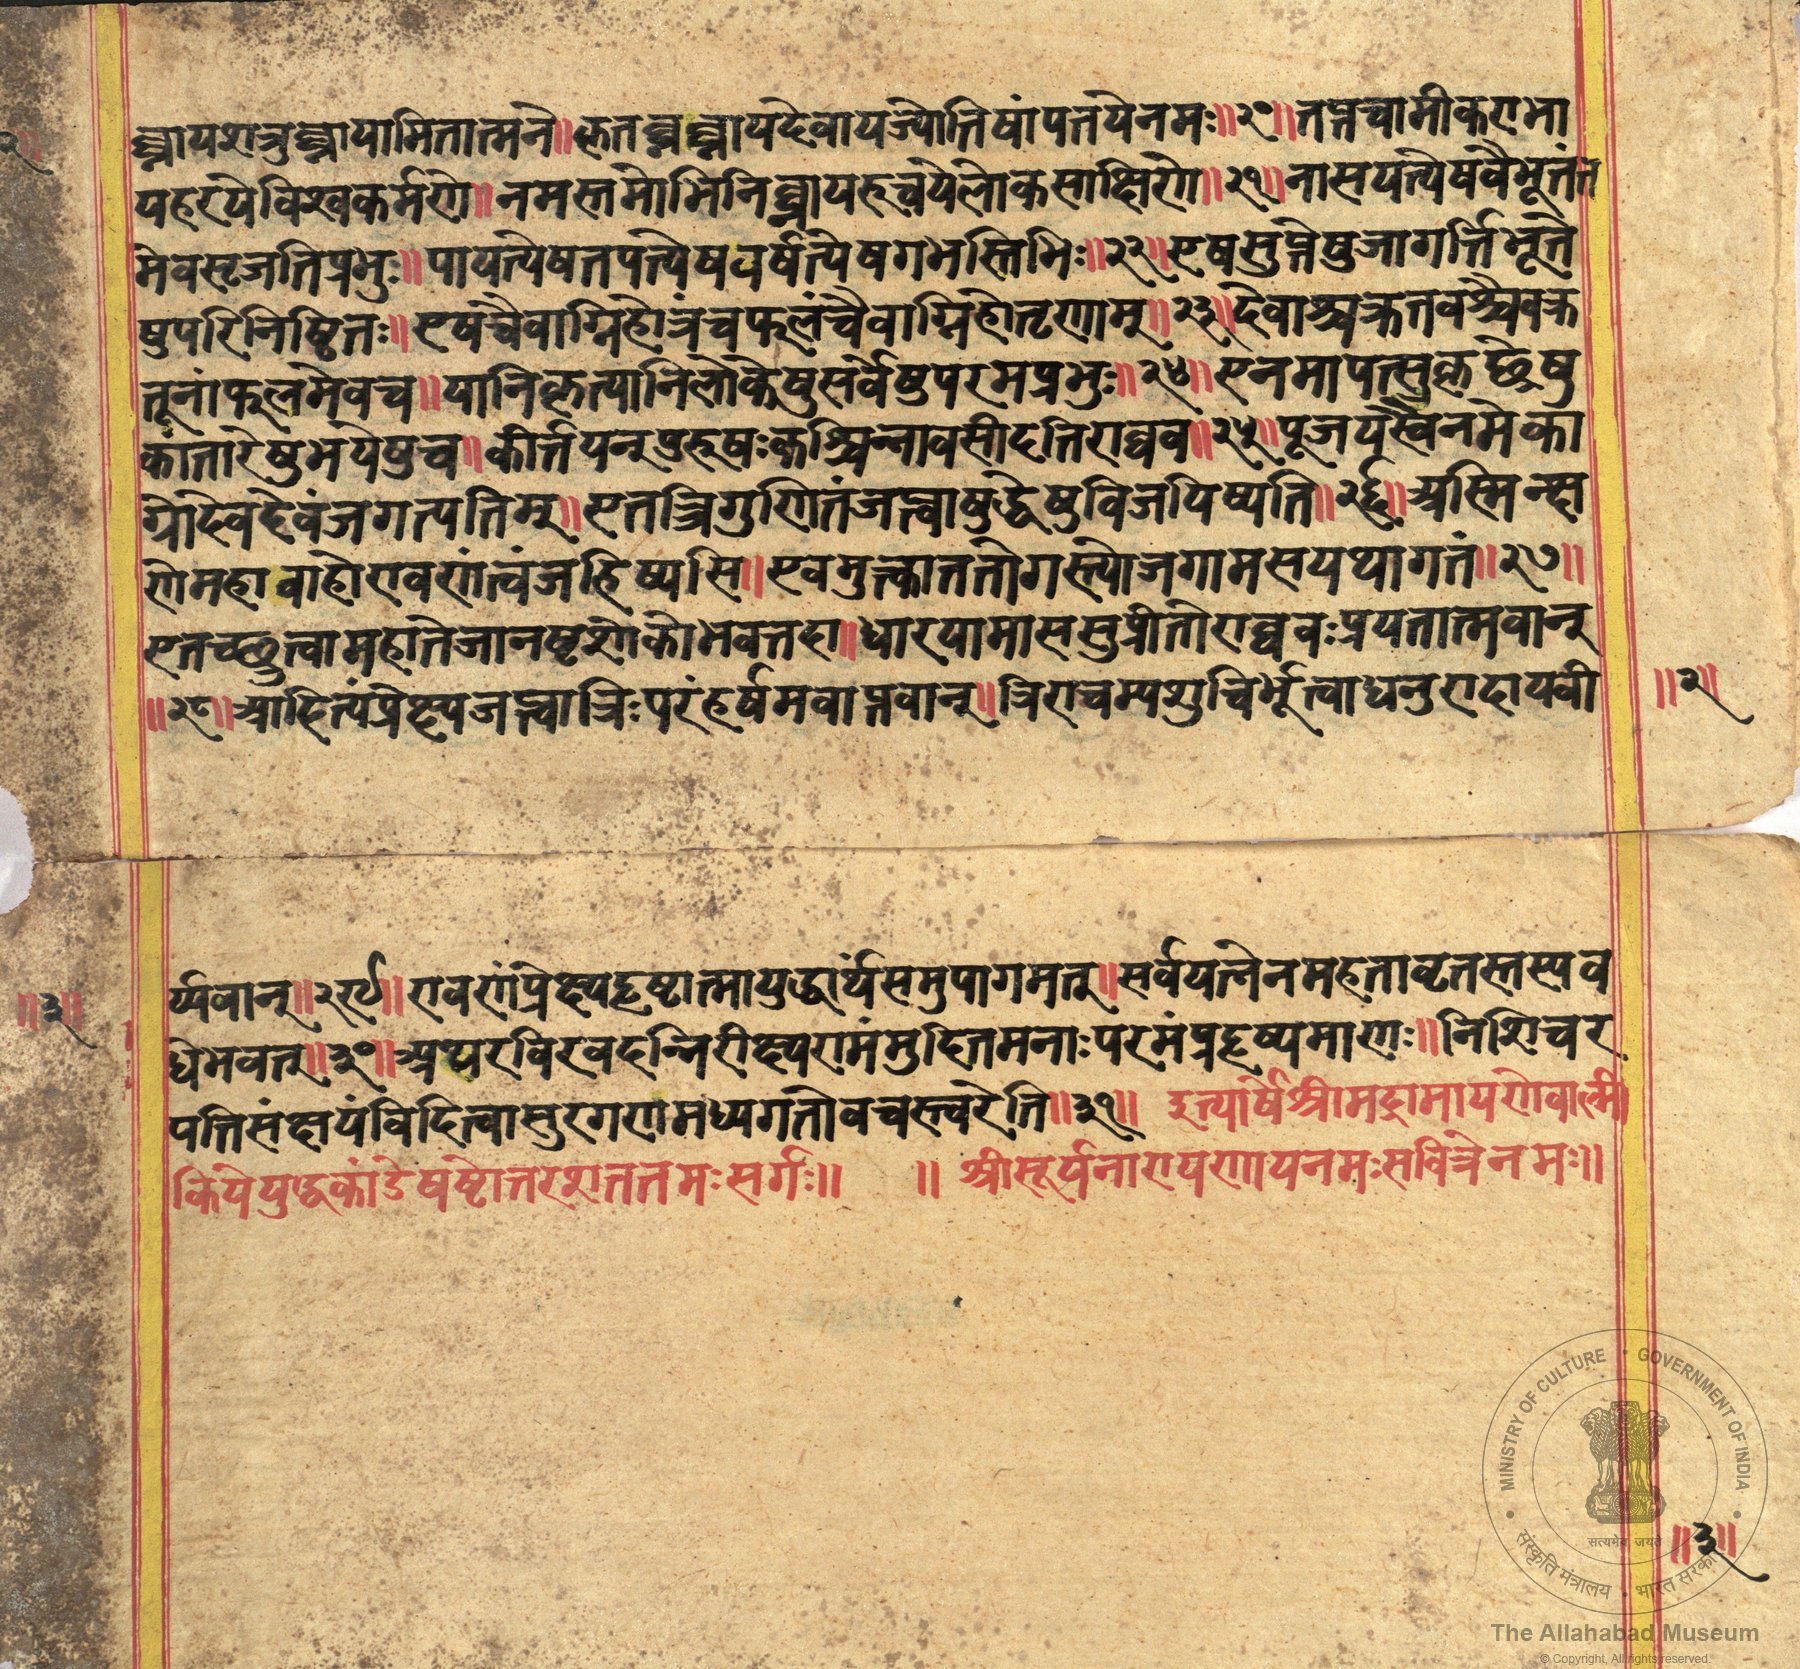 घ्नायशत्रुघ्नायामितात्मने॥कृतघ्नघ्नायदेवायज्योतिषांपतयेनमः॥२०॥तप्तचामीकराभा
यहरयेविश्वकर्मणे॥नमस्तमोभिनिघ्नायरुचयेलोकसाक्षिणे॥२१॥नासयत्येषवैभूतंत
मेवसृजतिप्रभुः॥पायत्येषतपत्येषवर्षत्येषगभस्तिभिः॥२२॥एषसुप्तेषुजागर्त्तिभूते
षुपरिनिष्ठितः॥एषचैवाग्निहोत्रंचफलंचैवाग्निहोतृणाम्॥२३॥देवाश्चक्रतवश्चैवक्र
तूनांफलमेवच॥यानिकृत्यानिलोकेषुसर्वेषुपरमप्रभुः॥२४॥एनमापत्सुकृछ्रेषु
कांतारेषुभयेषुच॥कीर्त्तयन्पुरुषःकश्चिन्नावसीदतिराघव॥२५॥पूजयस्वैनमेका
ग्रोदेवदेवंजगत्पतिम्॥एतत्त्रिगुणितंजप्त्वायुद्धेषुविजयिष्यति॥२६॥अस्मिन्क्ष
णेमहाबाहोरावणंत्वंजहिष्यसि॥एवमुक्त्वाततोगस्त्योजगामसयथागतं॥२७॥
एतच्छ्रुत्वामहातेजानष्टशोकोभवत्तदा॥धारयामाससुप्रीतोराघवःप्रयतात्मवान्
॥२८॥आदित्यंप्रेक्ष्यजप्त्वात्रिःपरंहर्षमवाप्तवान्॥त्रिराचम्यशुचिर्भूत्वाधनुरादायवी
॥२॥
र्य्यवान्॥२९॥रावणंप्रेक्ष्यहृष्टात्मायुद्धार्थंसमुपागमत्॥सर्वयत्नेनमहतावृतस्तस्यव
॥३॥
धेभवत्॥३०॥अथरविरवदन्निरीक्ष्यरामंमुदितमनाःपरमंप्रहृष्यमाणः॥निशिचर
पतिसंक्षयंविदित्वासुरगणमध्यगतोवचस्त्वरेति॥३१॥ इत्यार्षेश्रीमद्रामायणेवाल्मी
कियेयुद्धकांडेषष्टोत्तरशततमःसर्गः॥ ॥श्रीसूर्यनारायणायनमःसवित्रेनमः॥
॥३॥
MINISTRY OF CULTURE • GOVERNMENT OF INDIA
सत्यमेव जयते
संस्कृति मंत्रालय • भारत सरकार
The Allahabad Museum
© Copyright, All rights reserved.